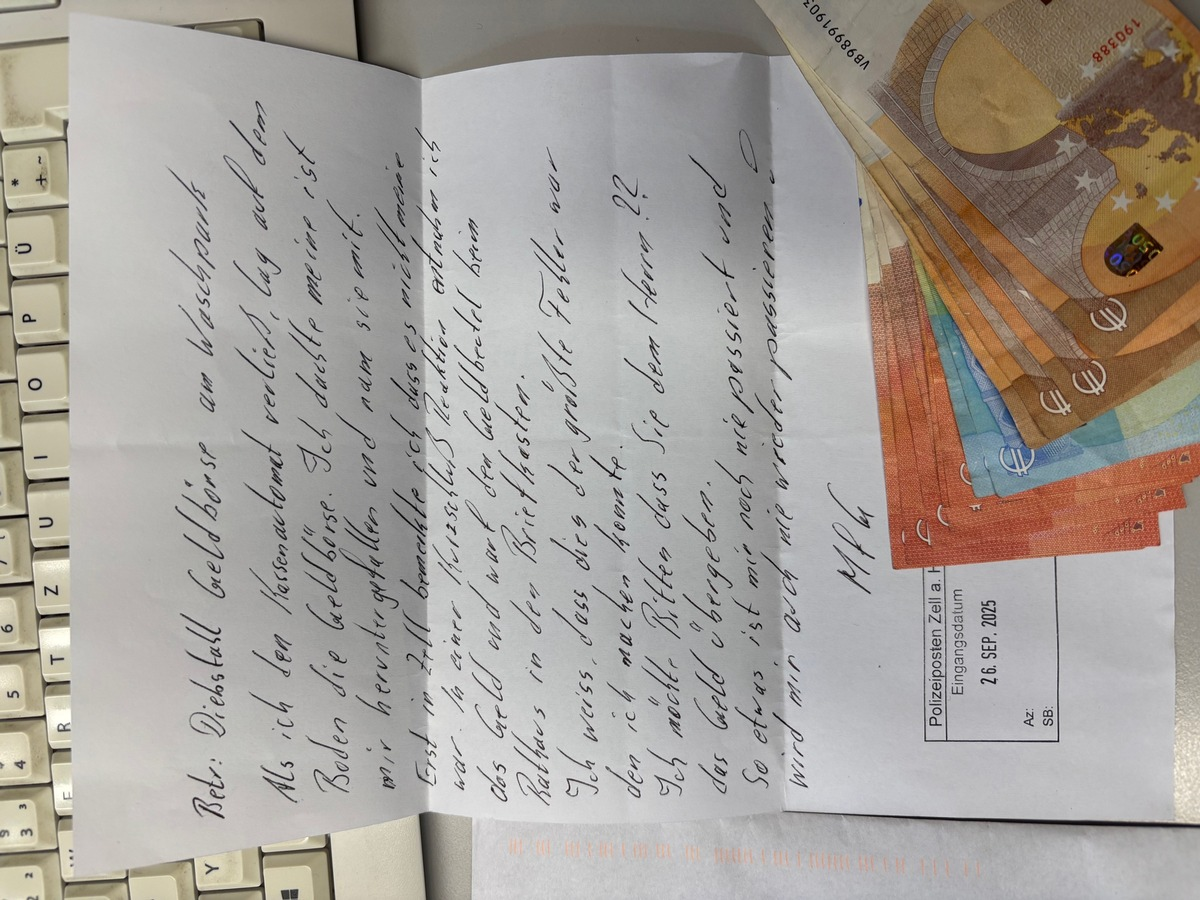 Betr.: Diebstahl Geldbörse am Waschpark
Als ich den Kassenautomat verließ, lag auf dem
Boden die Geldbörse. Ich dachte meine ist
mir heruntergefallen und nam sie mit.
Erst in Zell bemerkte ich dass es nicht meine
war. In einer Kurzschluß Reaktion entnahm ich
das Geld und warf den Geldbeutel beim
Rathaus in den Briefkasten.
Ich weiss, dass dies der größte Fehler war
den ich machen konnte.
Ich möchte Bitten dass Sie dem Herrn ??
das Geld übergeben.
So etwas ist mir noch nie passiert und
wird mir auch nie wieder passieren
MfG
Polizeiposten Zell a. H
Eingangsdatum
26. SEP. 2025
Az:
SB:
VB98991903
190388
50
€
€
€
€
* + ~
Ü
P
O
I
U
Z
T
R
E
Y
7
6
5
4
3
2